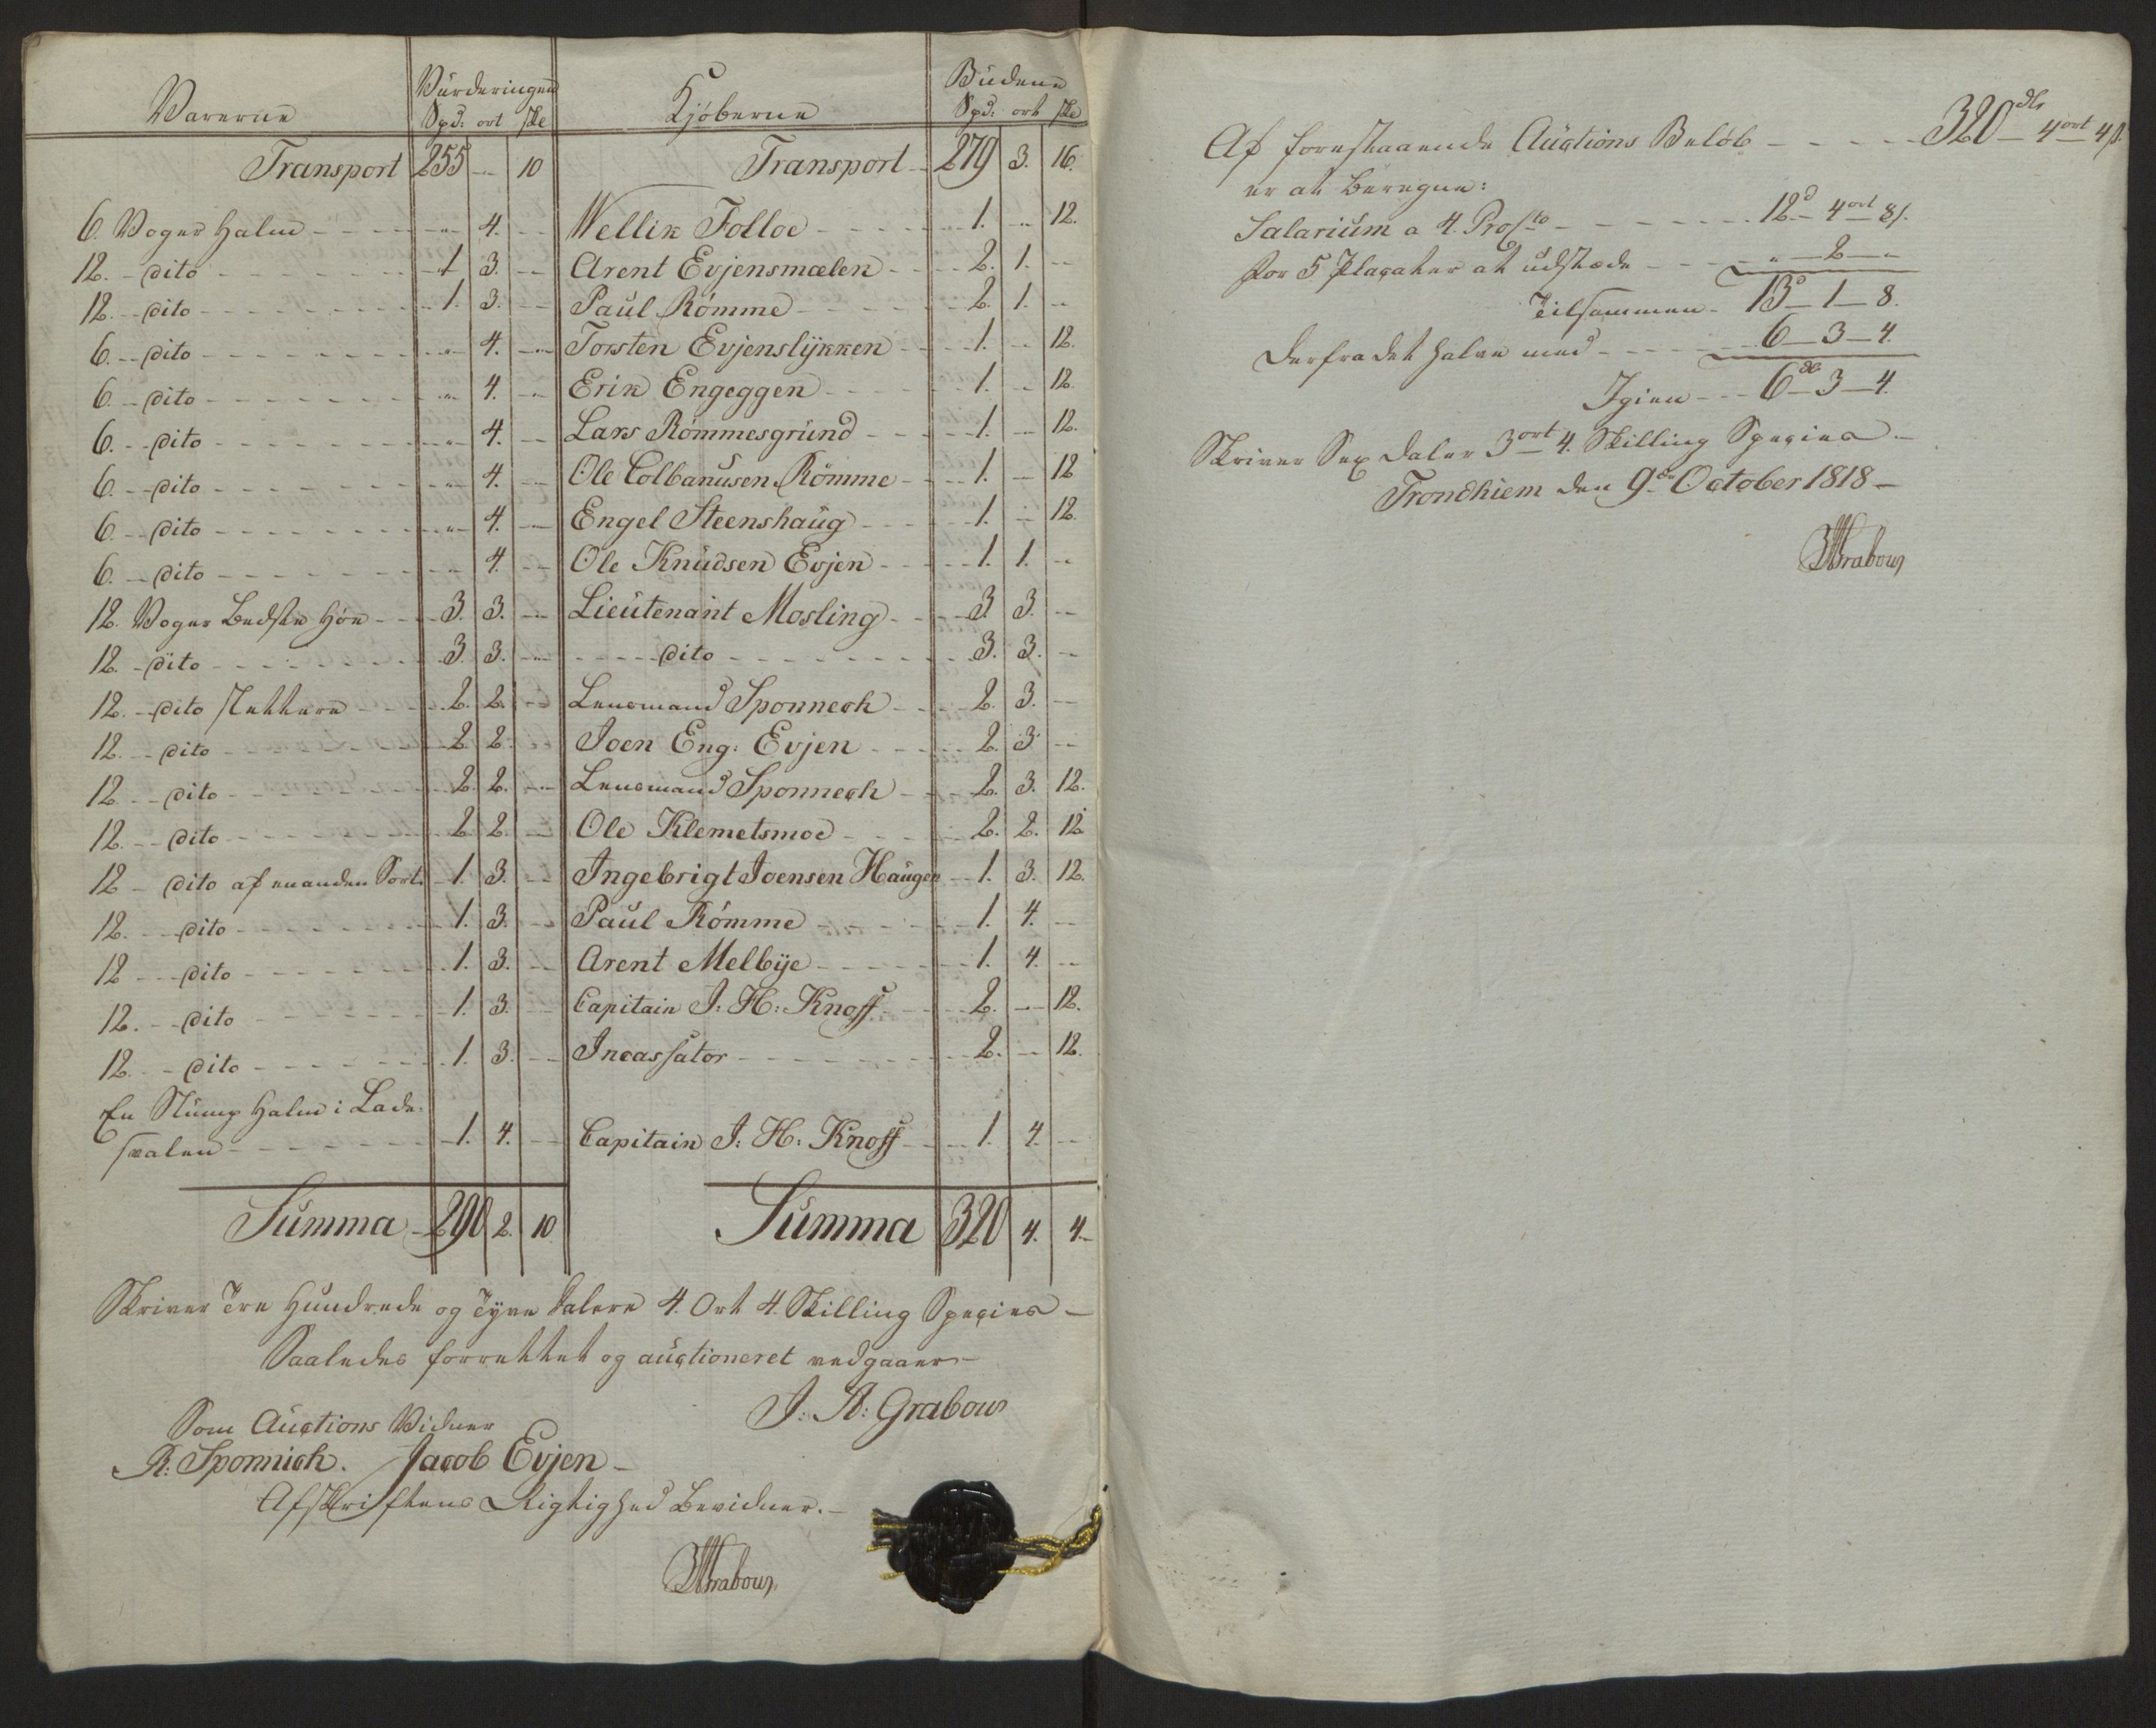 Varerne | Vürderingen | Kjøberne | Büdene
Spd: ort ske | Spd: ort ske
Transport 255 " 10 | Transport 279 3. 16.
6. Voger Halm " 4. " | Wellik Folloe 1. " 12.
12. dito 1 3. " | Arent Evjensmælen 2. 1. "
12. dito 1. 3. " | Paul Römme 2. 1. "
6. dito " 4. " | Torsten Evjenslÿkken 1. " 12.
6. dito " 4. " | Erik Engeggen 1. " 12.
6. dito " 4. " | Lars Römmesgründ 1. " 12.
6. dito " 4. " | Ole Colbanüsen Römme 1. " 12
6. dito " 4. " | Engel Steenshaüg 1. " 12.
6. dito " 4. " | Ole Knüdsen Evjen 1. 1. "
12. Voger Bedste Høe 3. 3. " | Lieütenant Mosling 3. 3. "
12. dito 3. 3. " | dito 3. 3. "
12. dito slettere 2. 2. " | Lensmand Sponneck 2. 3. "
12. dito 2 2. " | Joen Eng: Evjen 2. 3 "
12. dito 2. 2. " | Lensmand Sponneck 2. 3. 12.
12. dito 2 2. " | Ole Klemetsmoe 2. 2. 12
12 dito af en anden Sort. 1. 3. " | Ingebrigt Joensen Haügen 1. 3. 12.
12. dito 1. 3. " | Paül Römme 1. 4. "
12 dito 1. 3. " | Arent Melbÿe 1. 4. "
12. dito 1. 3. " | Capitain J. H: Knoff 2. " 12.
12. dito 1. 3. " | Incassator 2. " 12.
En Slump Halm i Lade-
svalen 1. 4. " | Capitain J: H: Knoff 1. 4. "
Summa 290 2. 10 | Summa 320 4. 4.
Skriver Tre Hundrede og Tyve Dalere 4. Ort 4. Skilling Species
Saaledes forrettet og auctioneret vedgaaer
J: A: Grabow
Som Auctions Vidner
R: Sponnick. Jacob Evjen
Afskriftens Rigtighed Bevidner.
JAGrabow
Af forestaaende Auctions Beløb 320 dlr 4 ort 4 s.
er at beregne:
Salarium a 4. Procto 12 d 4 ort 8 s.
for 5 Placater at udstæde " 2 "
Tilsammen 13 1 8.
Derfra det halve med 6 3 4.
Igien 6 dr 3 4.
Skriver Sex Daler 3 ort 4. Skilling Species
Trondhiem den 9de October 1818
JAGrabow